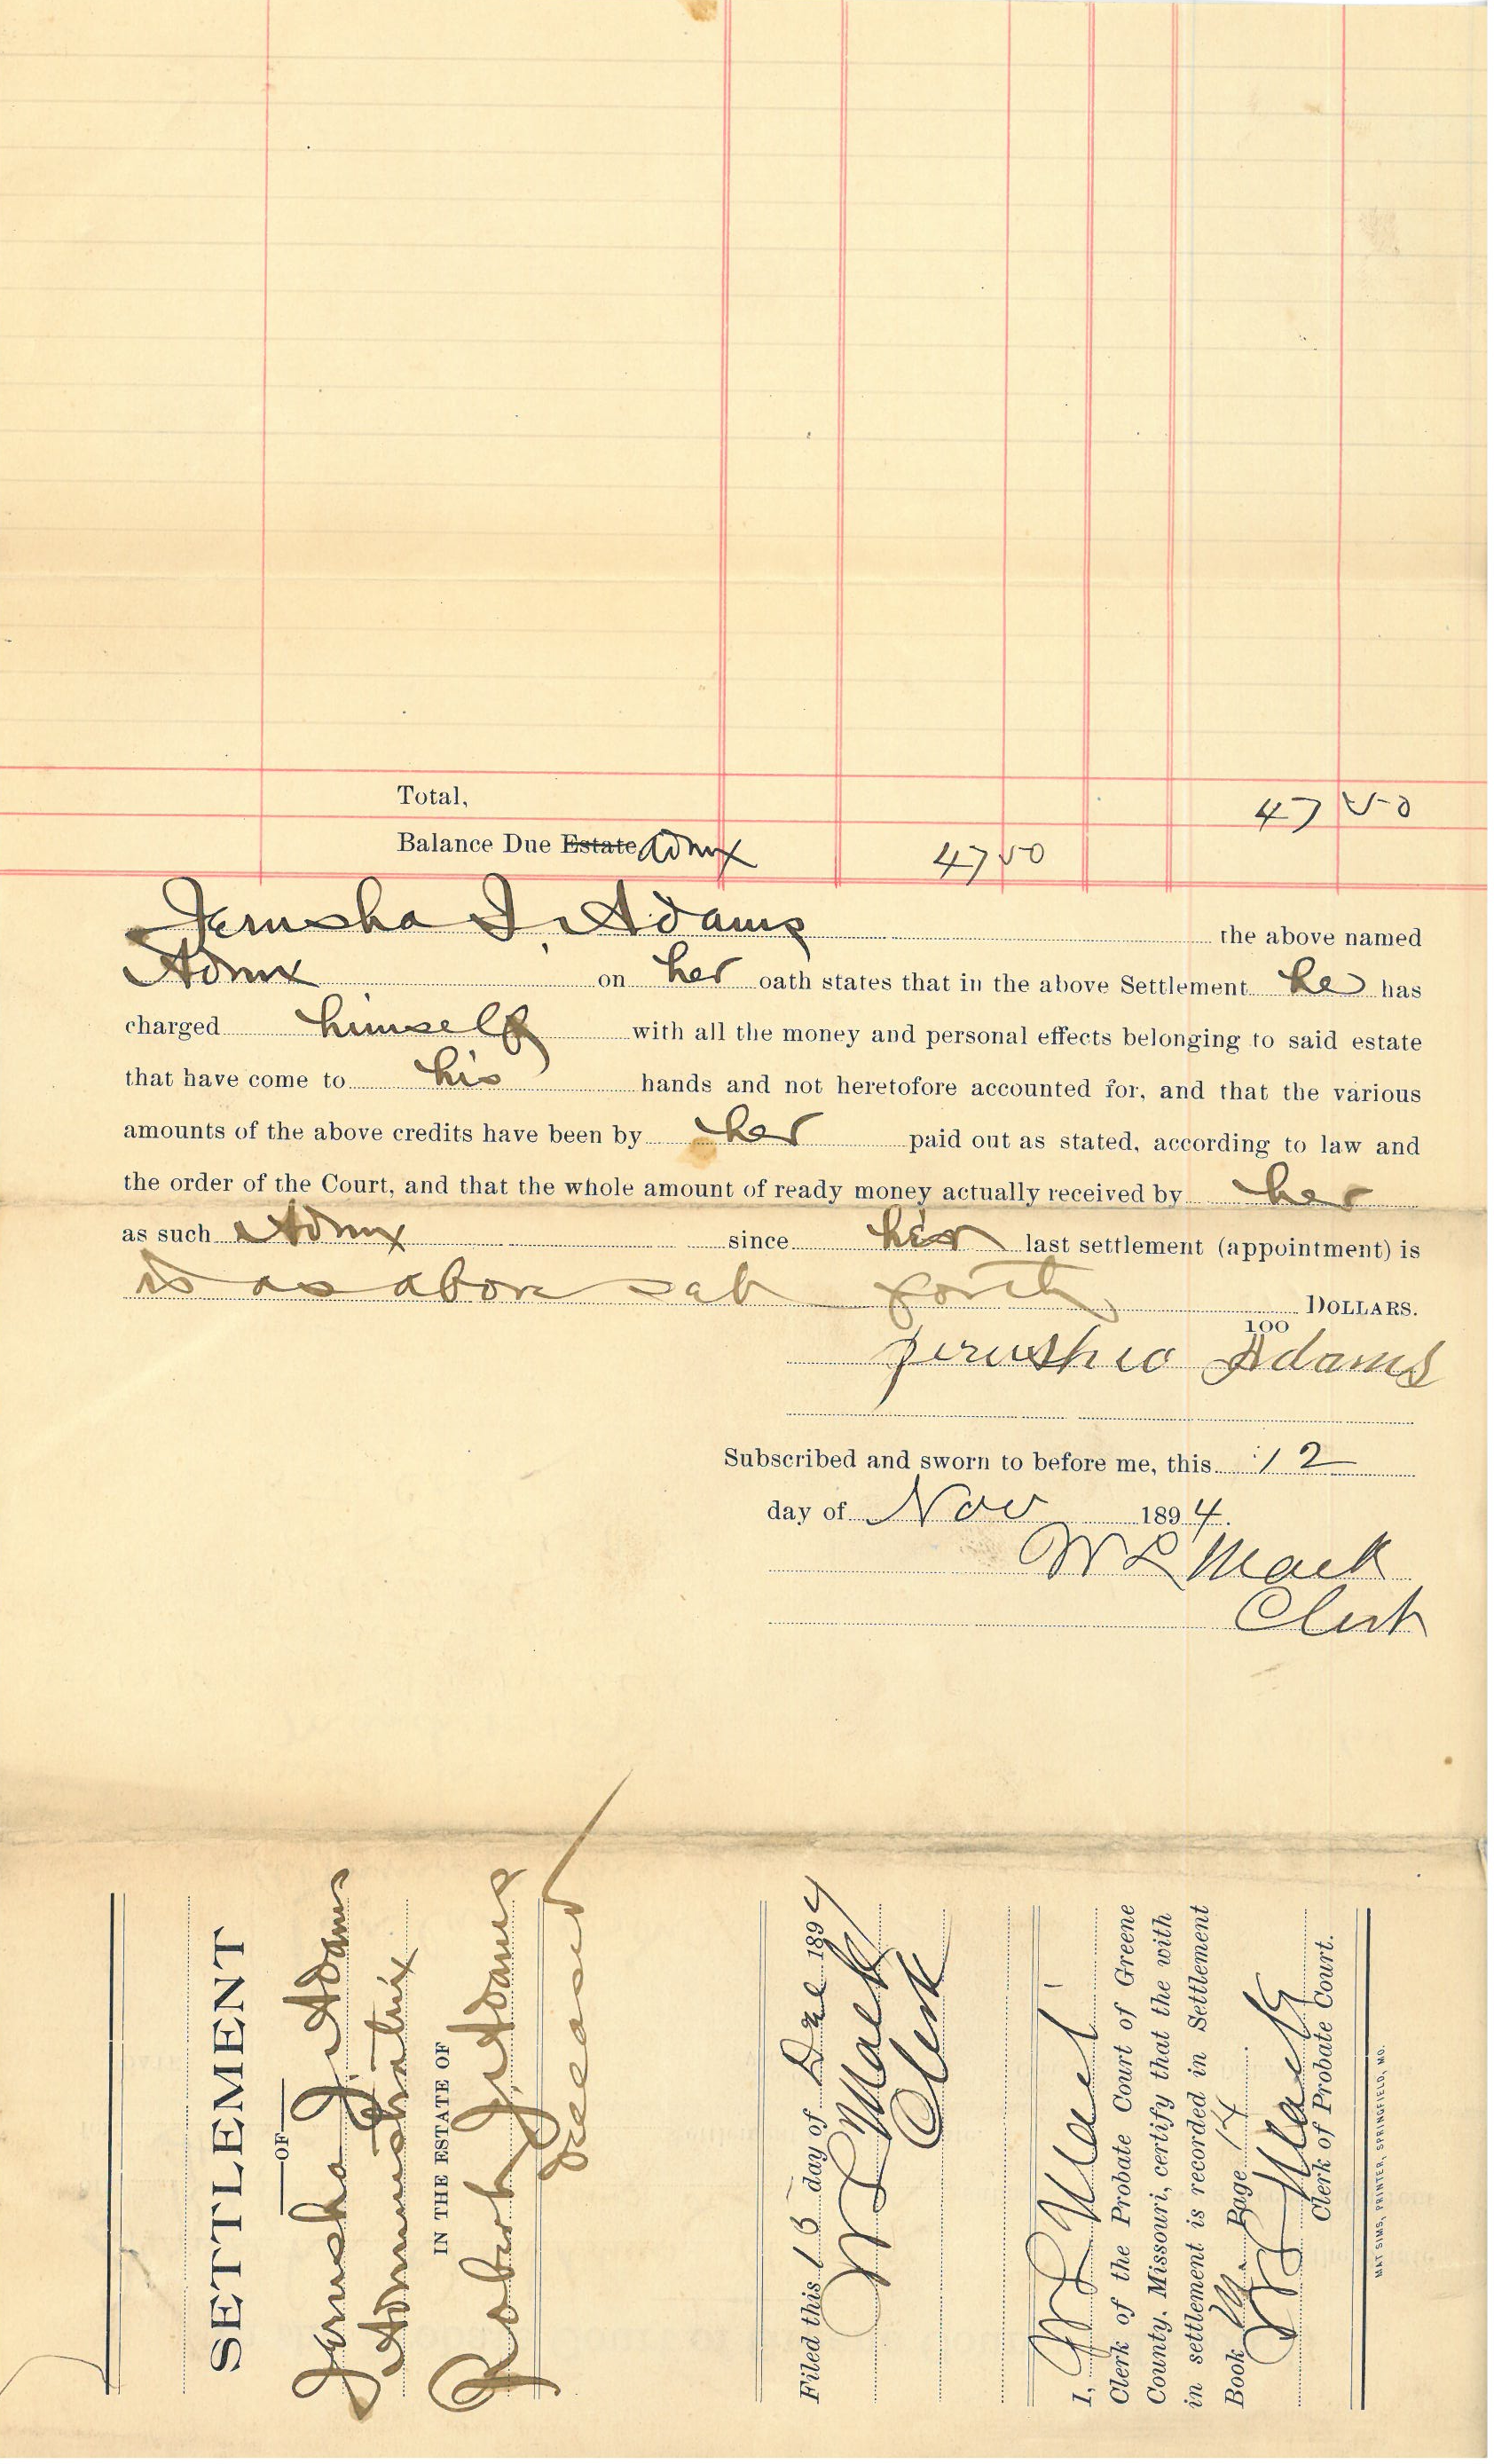 Total, 47 50
Balance Due Estate Admx 47 50
Jerusha J. Adams the above named
Admx on her oath states that in the above Settlement he has
charged himself with all the money and personal effects belonging to said estate
that have come to his hands and not heretofore accounted for, and that the various
amounts of the above credits have been by her paid out as stated, according to law and
the order of the Court, and that the whole amount of ready money actually received by her
as such Admx since her last settlement (appointment) is
is as above set forth DOLLARS.
100
Jerusha Adams
Subscribed and sworn to before me, this 12
day of Nov 1894.
W L Mack
Clerk
SETTLEMENT
OF
Jerusha J. Adams
Administratrix
IN THE ESTATE OF
Robert J. Adams
deceased
Filed this 15 day of Dec 1894
W L Mack
Clerk
I, W L Mack
Clerk of the Probate Court of Greene
County, Missouri, certify that the with
in settlement is recorded in Settlement
Book M. Page 14
W L Mack
Clerk of Probate Court.
MAT SIMS, PRINTER, SPRINGFIELD, MO.